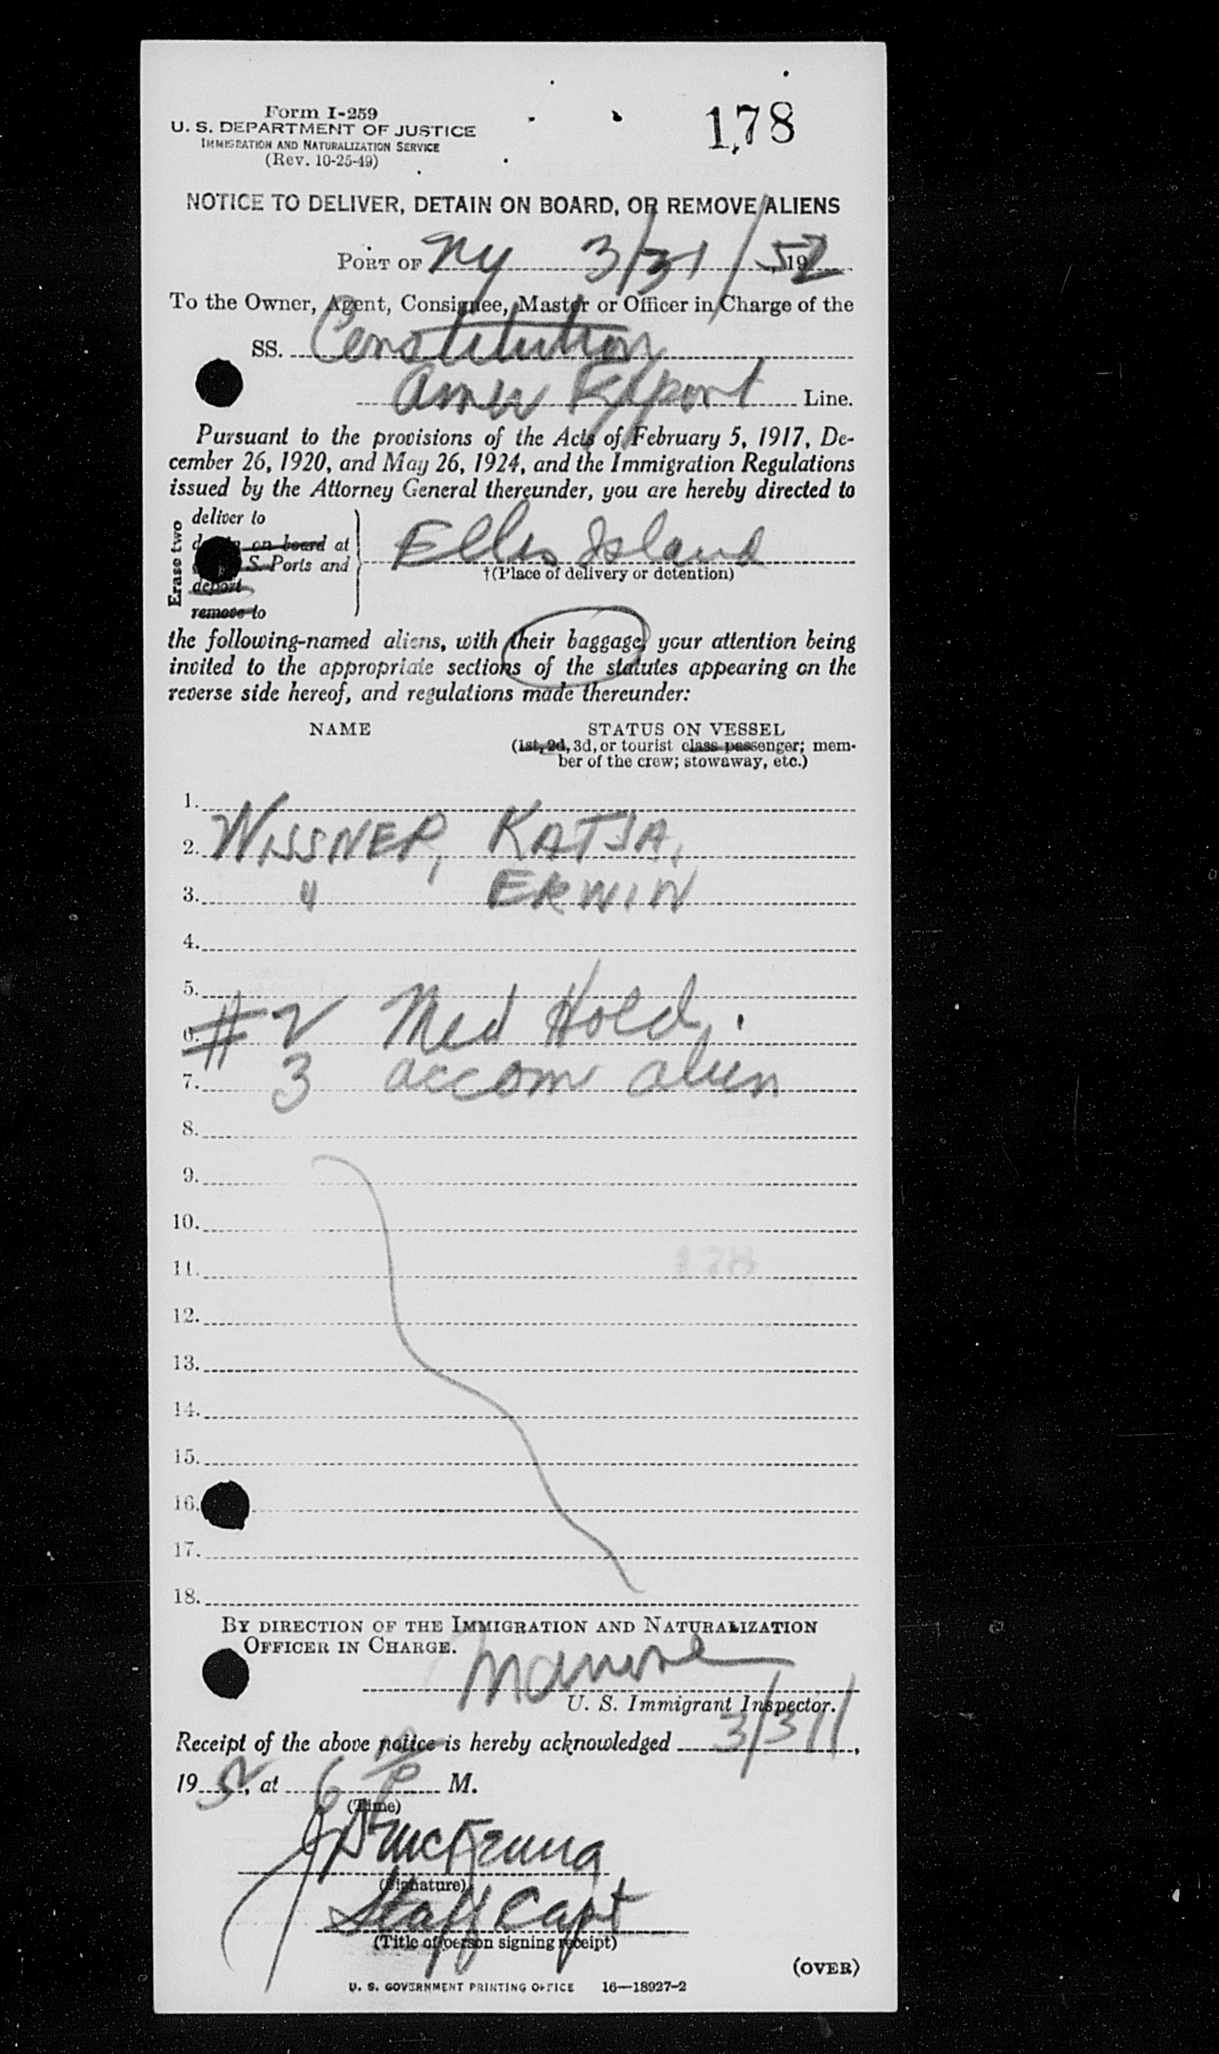 Form I-259
U. S. DEPARTMENT OF JUSTICE
IMMIGRATION AND NATURALIZATION SERVICE
(Rev. 10-25-49)
178
NOTICE TO DELIVER, DETAIN ON BOARD, OR REMOVE ALIENS
PORT OF NY 3/31/, 1952
To the Owner, Agent, Consignee, Master or Officer in Charge of the
SS. Constitution
Amer Export Line.
Pursuant to the provisions of the Acts of February 5, 1917, De-
cember 26, 1920, and May 26, 1924, and the Immigration Regulations
issued by the Attorney General thereunder, you are hereby directed to
Erase two
deliver to
on board at
S. Ports and
deport
remove to
Ellis Island
†(Place of delivery or detention)
the following-named aliens, with their baggage, your attention being
invited to the appropriate sections of the statutes appearing on the
reverse side hereof, and regulations made thereunder:
NAME STATUS ON VESSEL
(1st, 2d, 3d, or tourist class passenger; mem-
ber of the crew; stowaway, etc.)
1.
2. WISSNER, KATJA,
3. " ERWIN
4.
5.
6. # 2 Med Hold.
7. 3 accom alien
8.
9.
10.
11. 178
12.
13.
14.
15.
16.
17.
18.
BY DIRECTION OF THE IMMIGRATION AND NATURALIZATION
OFFICER IN CHARGE.
U. S. Immigrant Inspector.
Receipt of the above notice is hereby acknowledged 3/31/,
1952, at 6 P M.
(Time)
(Signature)
Staff Capt
(Title of person signing receipt)
(OVER)
U. S. GOVERNMENT PRINTING OFFICE 16—18927-2